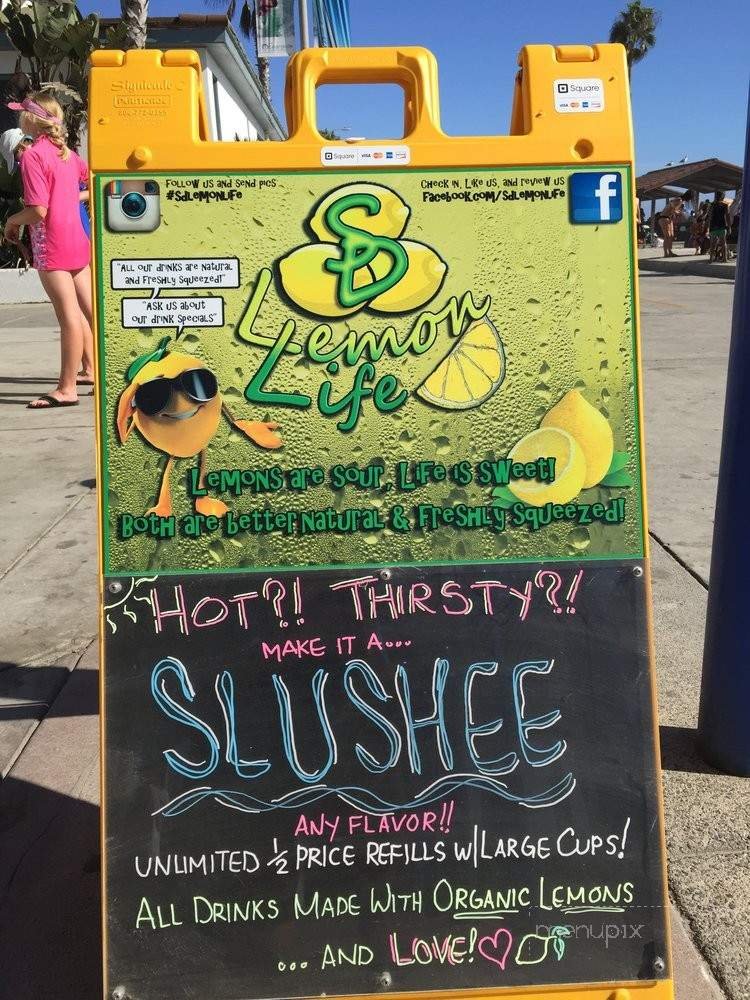 Signicade
Square
VISA
Square VISA
Follow us and send pics
#SDLemonLife
Check in, Like us, and review us
Facebook.com/SDLemonLife
f
SD
Lemon
Life
"All our drinks are natural
and freshly squeezed!"
"Ask us about
our drink specials"
Lemons are Sour, Life is Sweet!
Both are better Natural & Freshly Squeezed!
HOT?! THIRSTY?!
MAKE IT A...
SLUSHEE
ANY FLAVOR!!
UNLIMITED ½ PRICE REFILLS W/LARGE CUPS!
ALL DRINKS MADE WITH ORGANIC LEMONS
... AND LOVE!
menupix